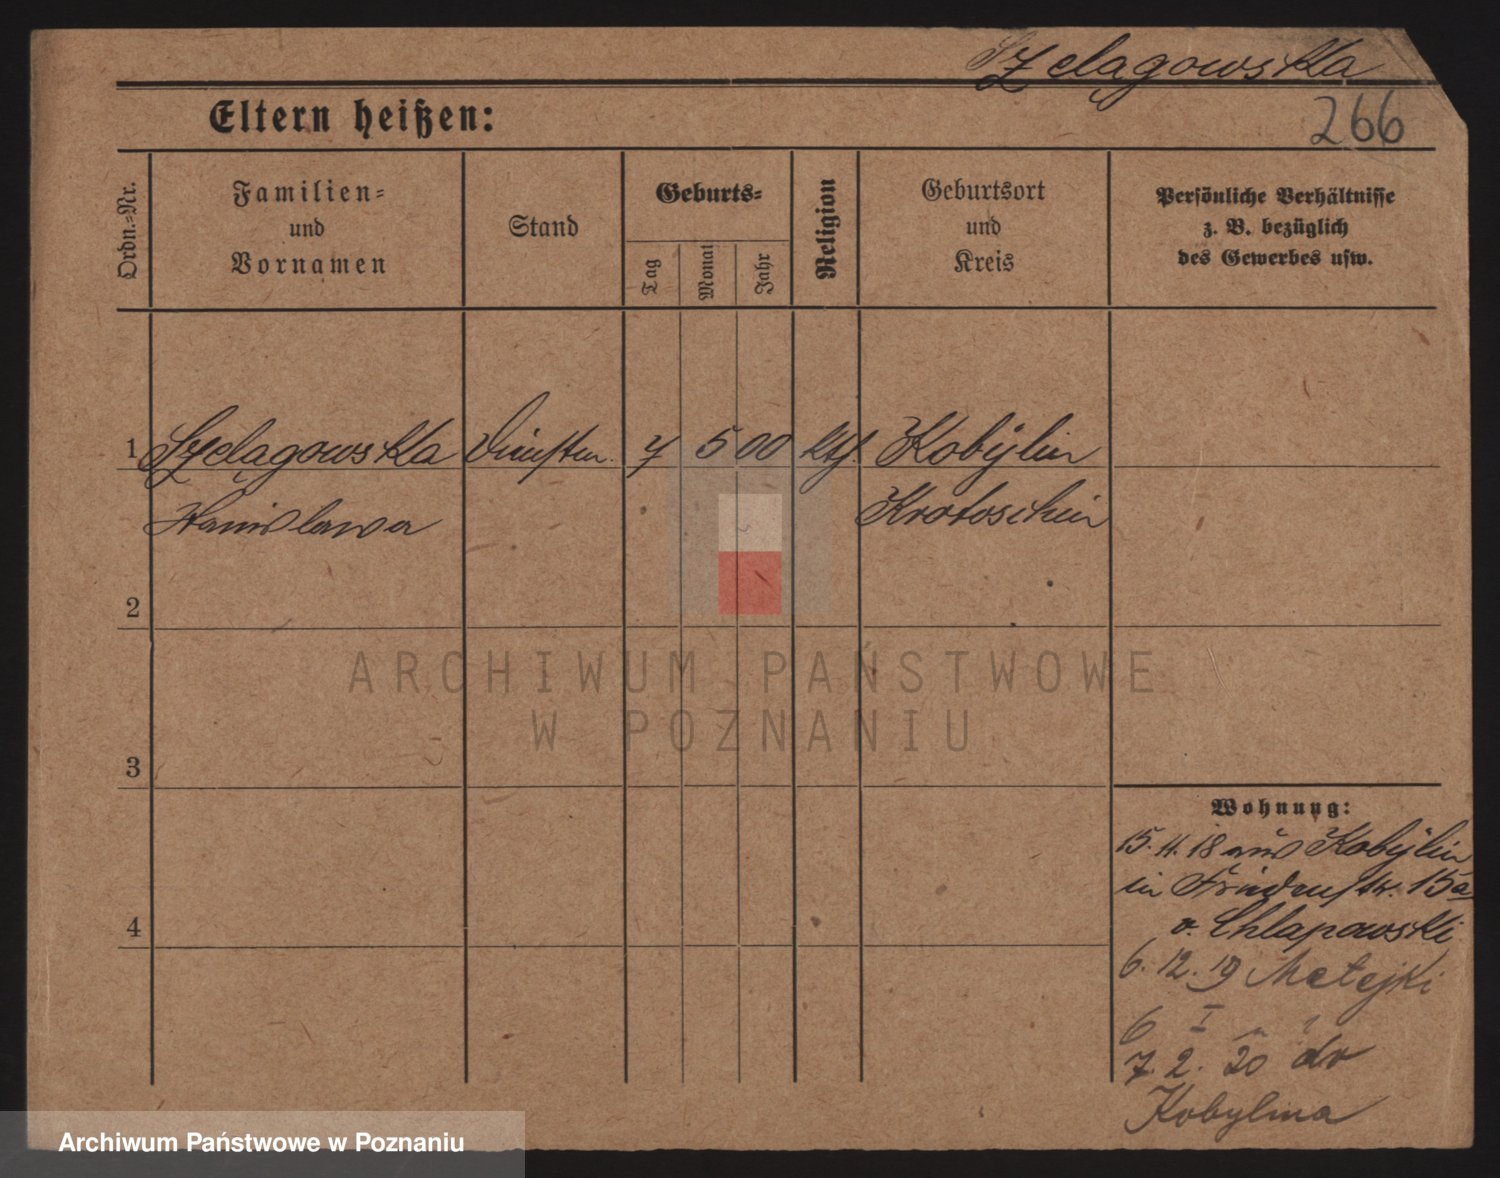 Szelągowska
Eltern heißen:
266
Ordn.=Nr.
Familien=
und
Vornamen
Stand
Geburts=
Tag
Monat
Jahr
Religion
Geburtsort
und
Kreis
Persönliche Verhältnisse
z. B. bezüglich
des Gewerbes usw.
1 Szelągowska 7 5 00 Kobylin
Stanislawa Krotoschin
2
3
4
Wohnung:
15. 11. 18 aus Kobylin
in 15a
v. Chlapowski
6. 12. 19 Matejki
6 I
7. 2. 20 do
Kobylina
ARCHIWUM PAŃSTWOWE
W POZNANIU
Archiwum Państwowe w Poznaniu